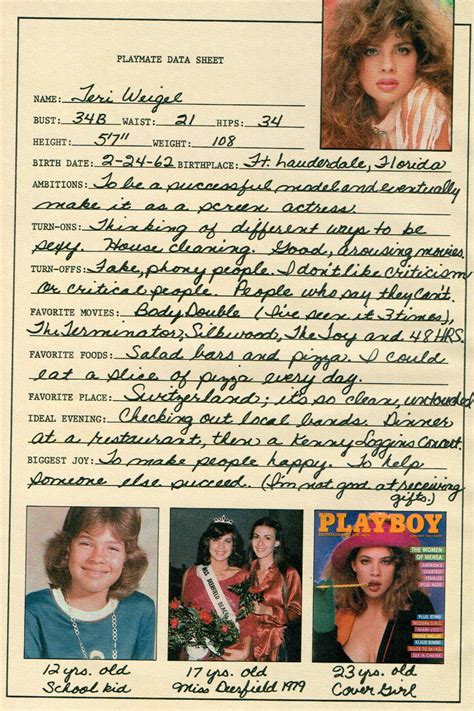 PLAYMATE DATA SHEET
NAME: Teri Weigel
BUST: 34B WAIST: 21 HIPS: 34
HEIGHT: 5'7" WEIGHT: 108
BIRTH DATE: 2-24-62 BIRTHPLACE: Ft. Lauderdale, Florida
AMBITIONS: To be a successful model and eventually
make it as a screen actress.
TURN-ONS: Thinking of different ways to be
sexy. House cleaning. Good, arousing movies.
TURN-OFFS: Fake, phony people. I don't like criticism
or critical people. People who say they can't.
FAVORITE MOVIES: Body Double (I've seen it 3 times),
The Terminator, Silkwood, The Toy and 48 HRS.
FAVORITE FOODS: Salad bars and pizza. I could
eat a slice of pizza every day.
FAVORITE PLACE: Switzerland; it's so clean, untouched.
IDEAL EVENING: Checking out local bands. Dinner
at a restaurant, then a Kenny Loggins Concert.
BIGGEST JOY: To make people happy. To help
someone else succeed. (I'm not good at receiving
gifts.)
MISS DEERFIELD BEACH
PLAYBOY
THE WOMEN
OF MENSA
AMERICA'S
SMARTEST
FEMALES
POSE NUDE
PLUS: STING
MODERN GIRLS
MIAMI VICE
GUIDE TO SKIING
SEX IN CINEMA
12 yrs. old
School kid
17 yrs. old
Miss Deerfield 1979
23 yrs. old
Cover Girl